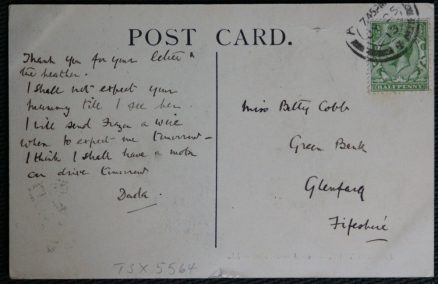 POST CARD.
Thank you for your letter &
the heather.
I shall not expect your
mummy till I see her.
I will send a wire
when to expect me tomorrow -
I think I shall have a motor
car drive tomorrow
Dada.
Miss Betty Cobb
Green Bank
Glenfarg
Fifeshire
HALFPENNY
7.45 PM
TSX 5564